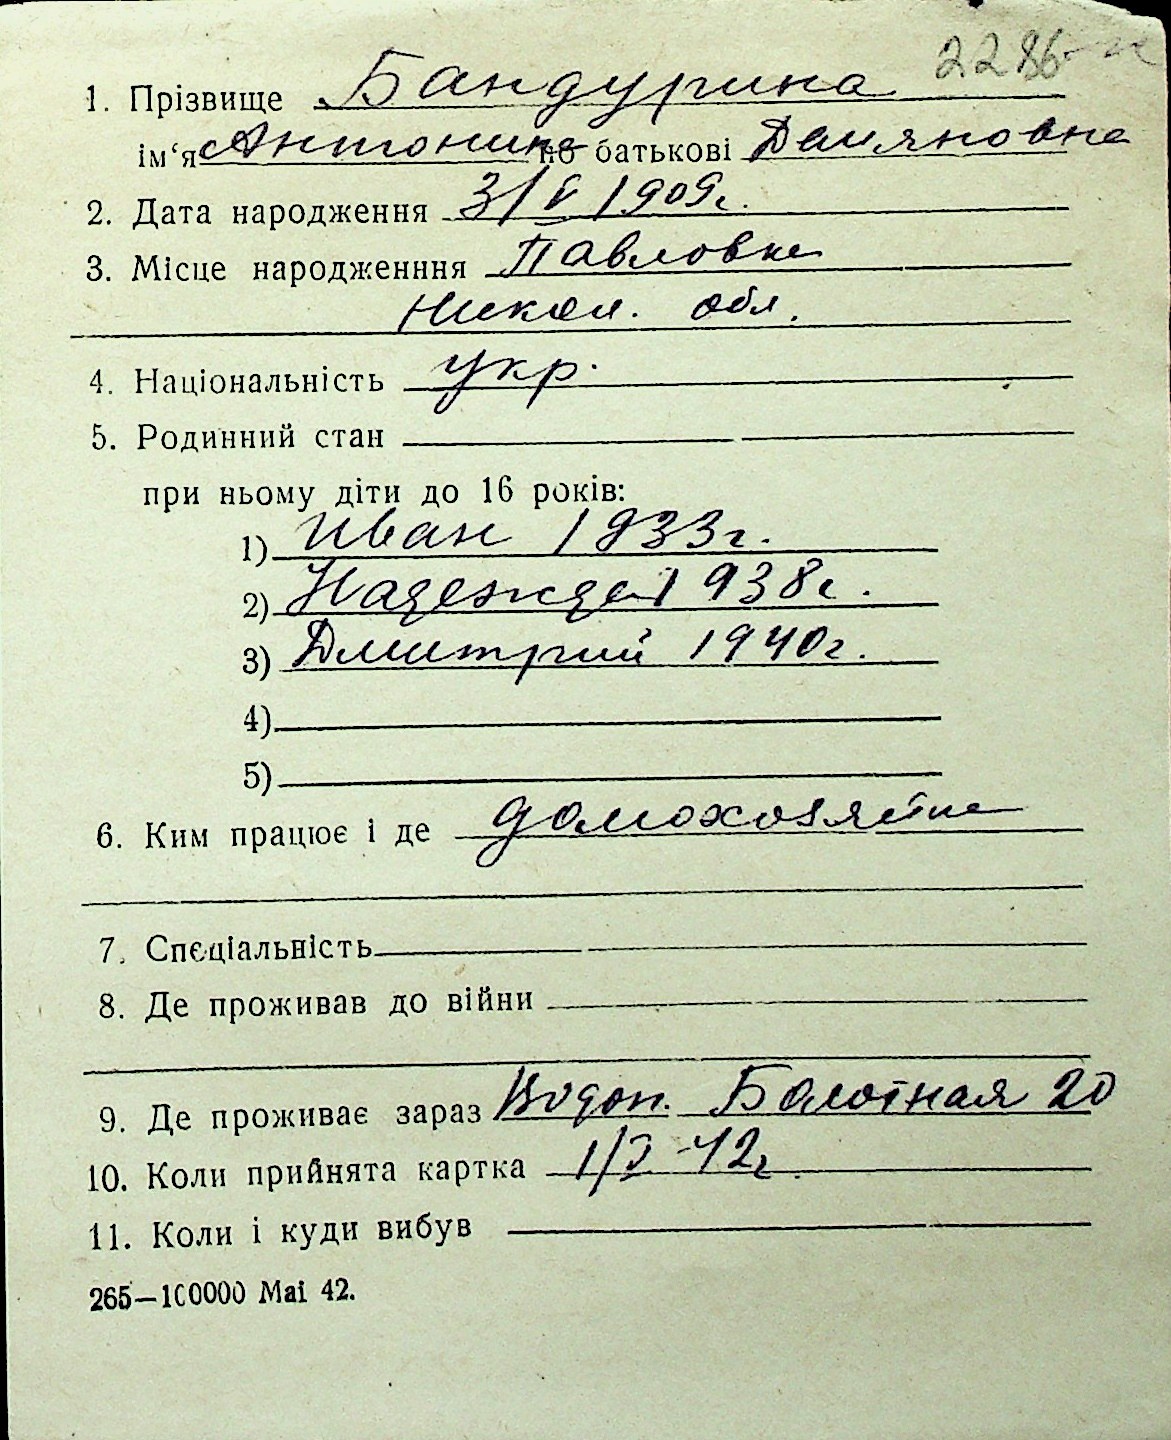 2286-н
1. Прізвище Бандурина
ім‘я Антонина по батькові Демяновна
2. Дата народження 3/V 1909г.
3. Місце народженння Павловка
Никол. обл.
4. Національність укр.
5. Родинний стан
при ньому діти до 16 років:
1) Иван 1933г.
2) Надежда 1938г.
3) Дмитрий 1940г.
4)
5)
6. Ким працює і де домохозяйка
7. Спеціальність
8. Де проживав до війни
9. Де проживає зараз Водоп. Болотная 20
10. Коли прийнята картка 1/I-42г.
11. Коли і куди вибув
265—100000 Mai 42.